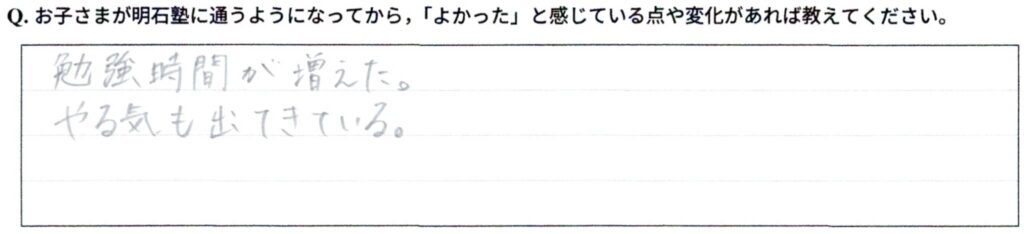 Q. お子さまが明石塾に通うようになってから，「よかった」と感じている点や変化があれば教えてください。
勉強時間が増えた。
やる気も出てきている。